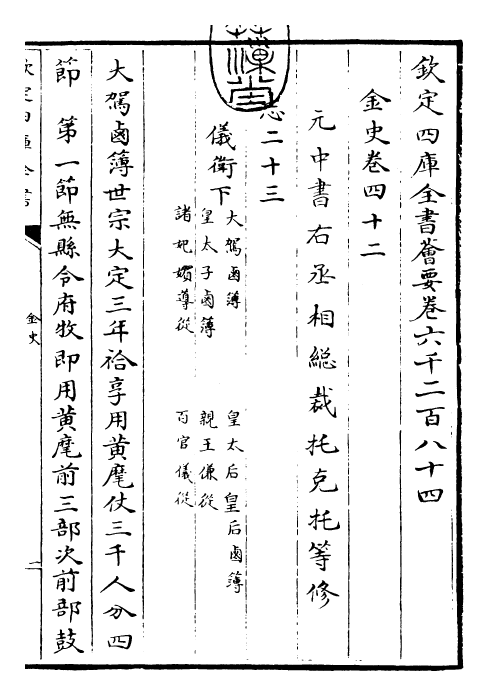 欽定四庫全書薈要卷六千二百八十四
金史卷四十二
元中書右丞相總裁托克托等修
志二十三
儀衛下
大駕鹵簿
皇太后皇后鹵簿
皇太子鹵簿
親王傔從
諸妃嬪導從
百官儀從
大駕鹵簿世宗大定三年祫享用黄麾仗三千人分四
節 第一節無縣令府牧即用黄麾前三部次前部鼓
欽定四庫全書
金史